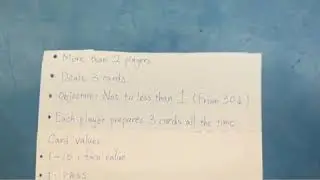 • More than 2 players
• Deals 3 cards
• Objective: Not to less than 1 (From 30↓)
• Each player prepares 3 cards all the time
Card values
• 1-10 : face value
• J : PASS